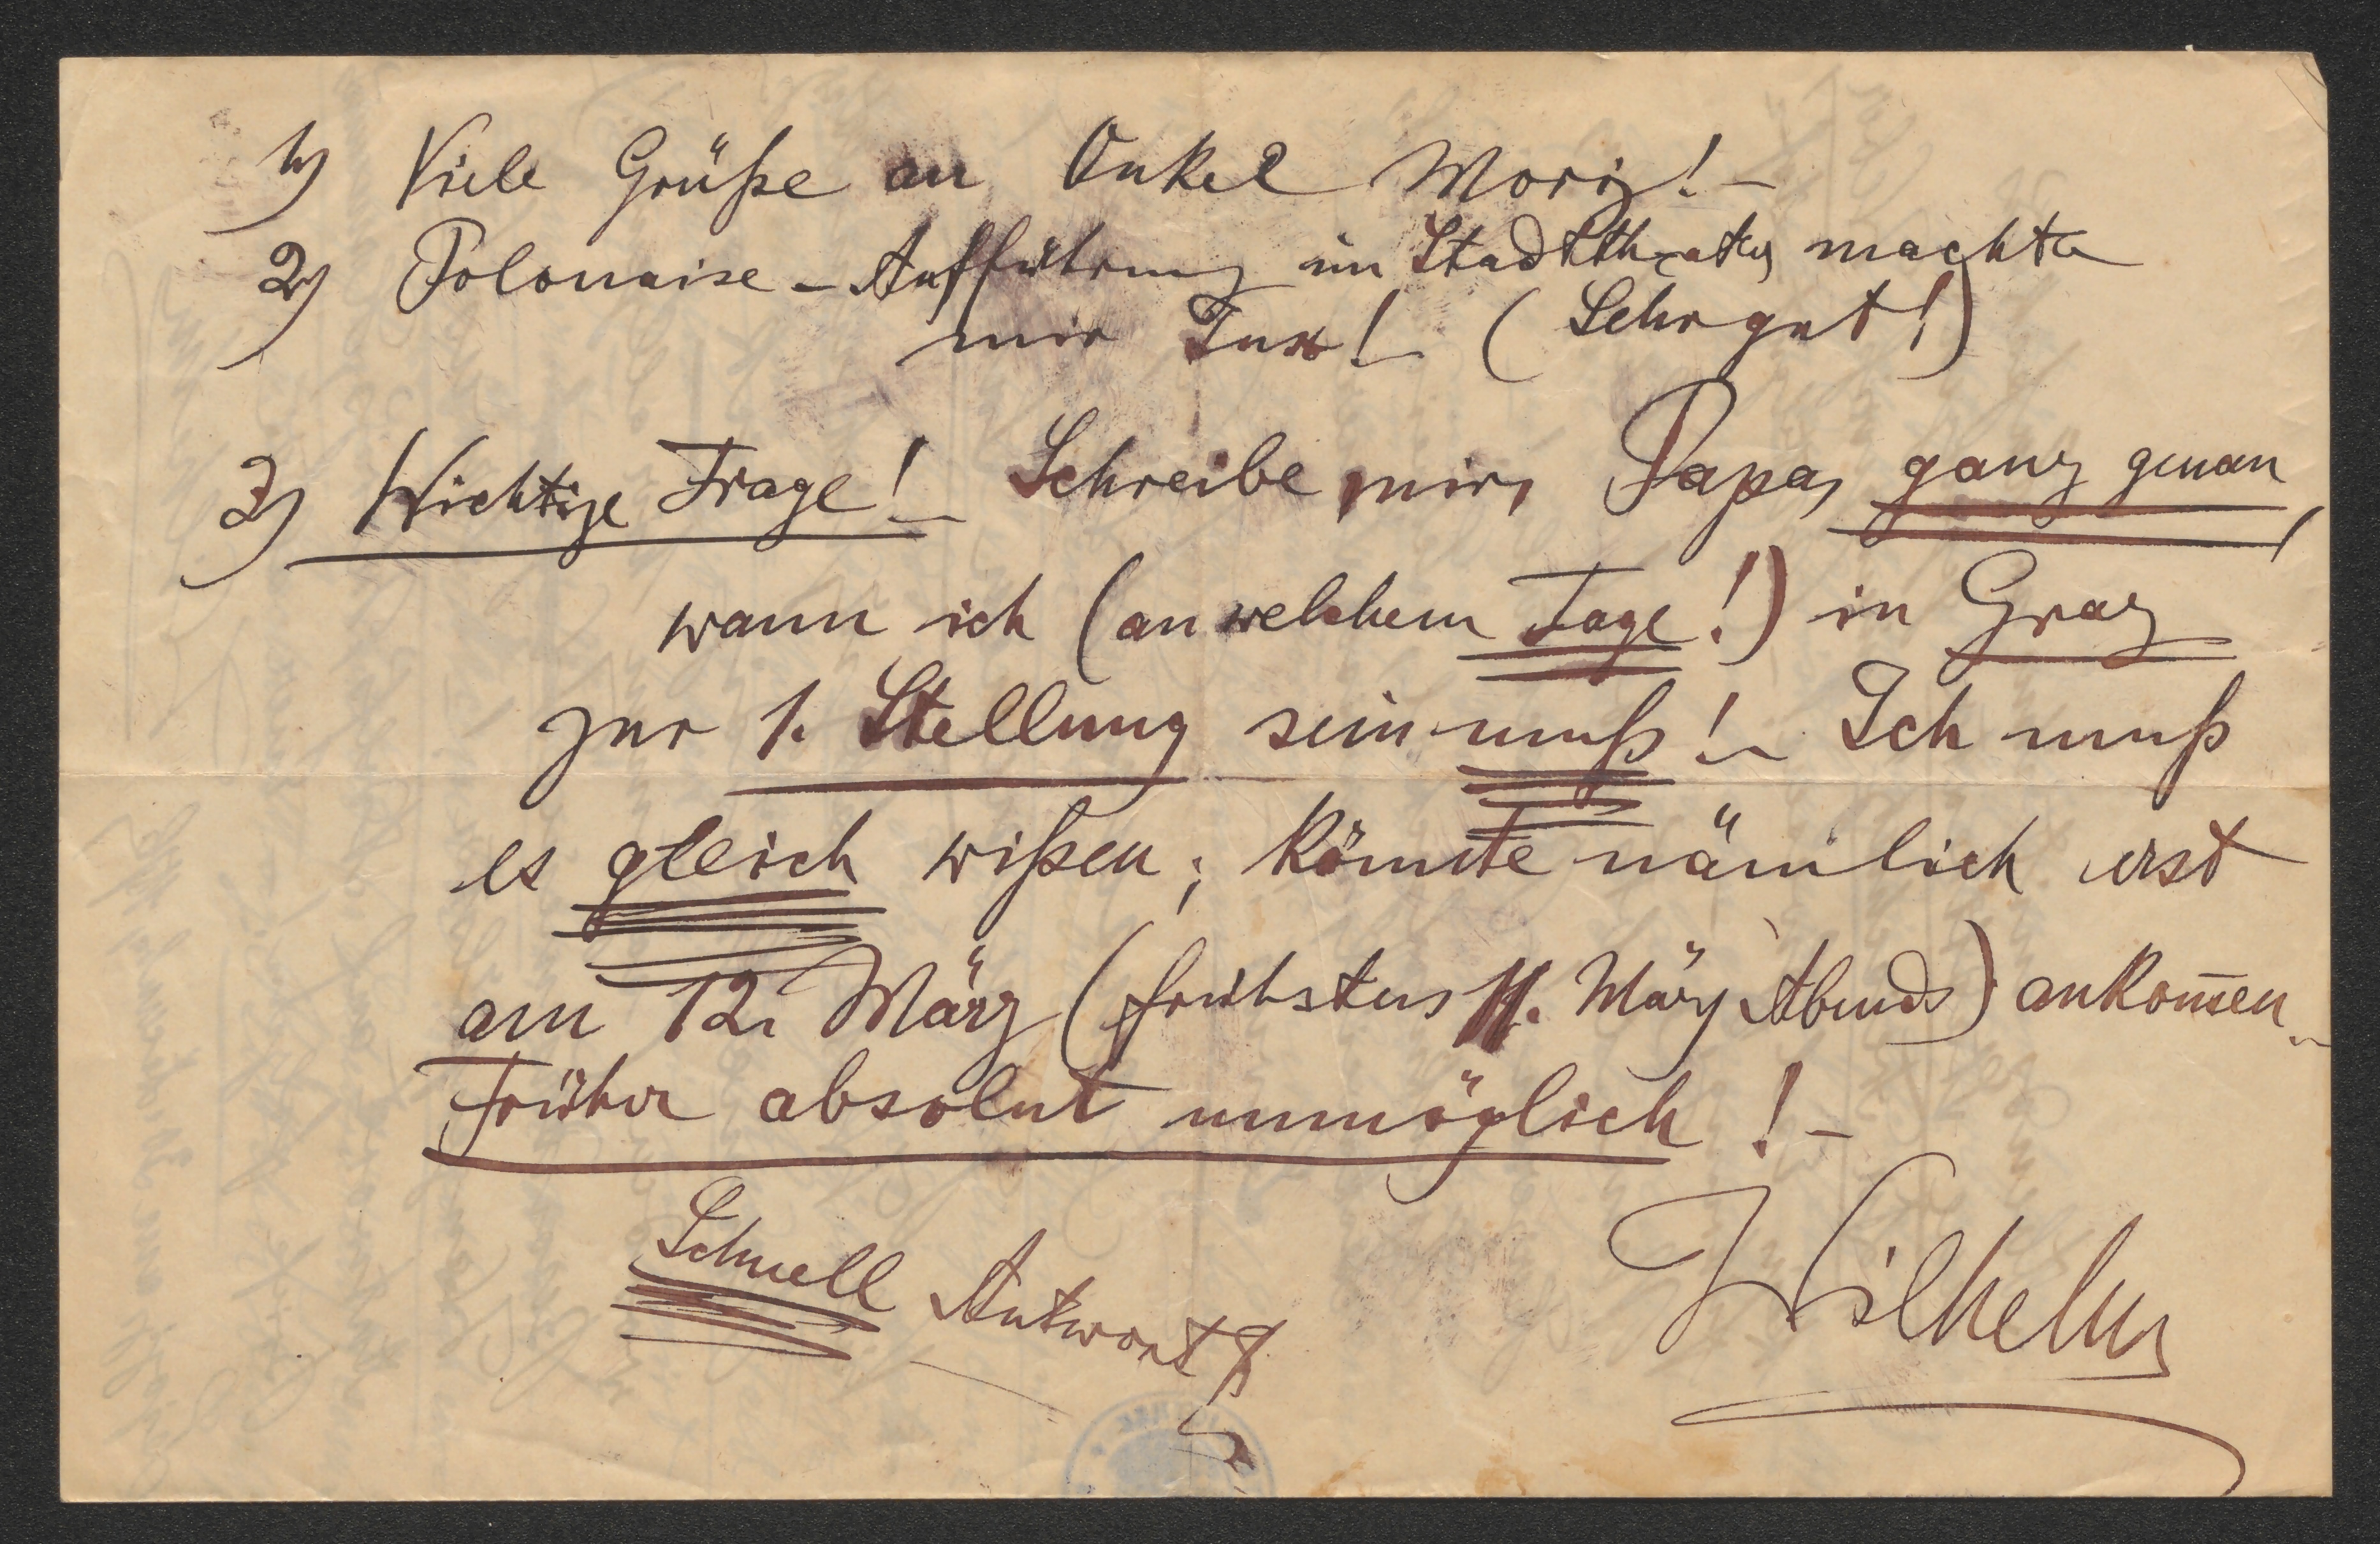 1) Viele Grüße an Onkel Moriz! –
2) Polonaise – Aufführung im Stadttheater machte
mir Jux! – (Sehr gut!)
3) Wichtige Frage! – Schreibe mir, Papa, ganz genau,
wann ich (an welchem Tage!) in Graz
zur 1. Stellung sein muß! – Ich muß
es gleich wißen; könnte nämlich erst
am 12. März (frühstens 11. März Abends) ankom̄en. –
Früher absolut unmöglich! –
Schnell Antwort!
Wilhelm